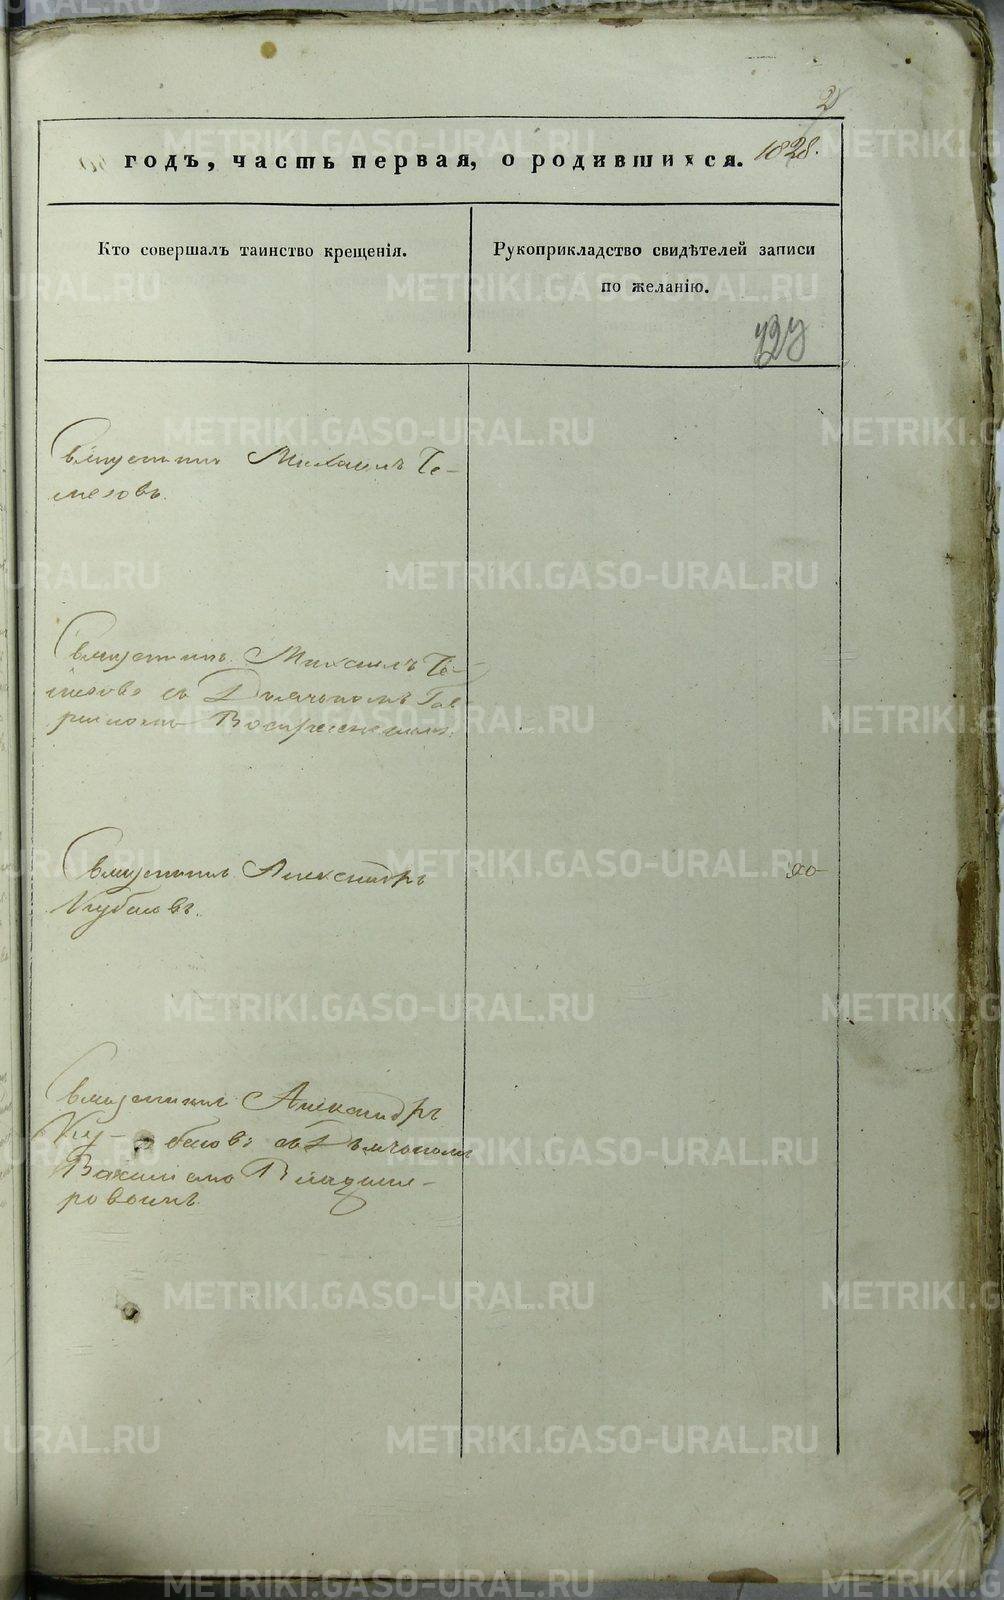 2
годъ, часть первая, о родившихся. 1828.
Кто совершалъ таинство крещенія.
Рукоприкладство свидѣтелей записи
по желанію.
Священникъ Михаилъ Те-
мезовъ.
Священникъ Михаилъ Те-
мезовъ съ Дьячкомъ Гав
риломъ Воскресенскимъ.
Священникъ Александръ
Священникъ Александръ
съ Дьячкомъ
Владими-
ровымъ.
METRIKI.GASO-URAL.RU